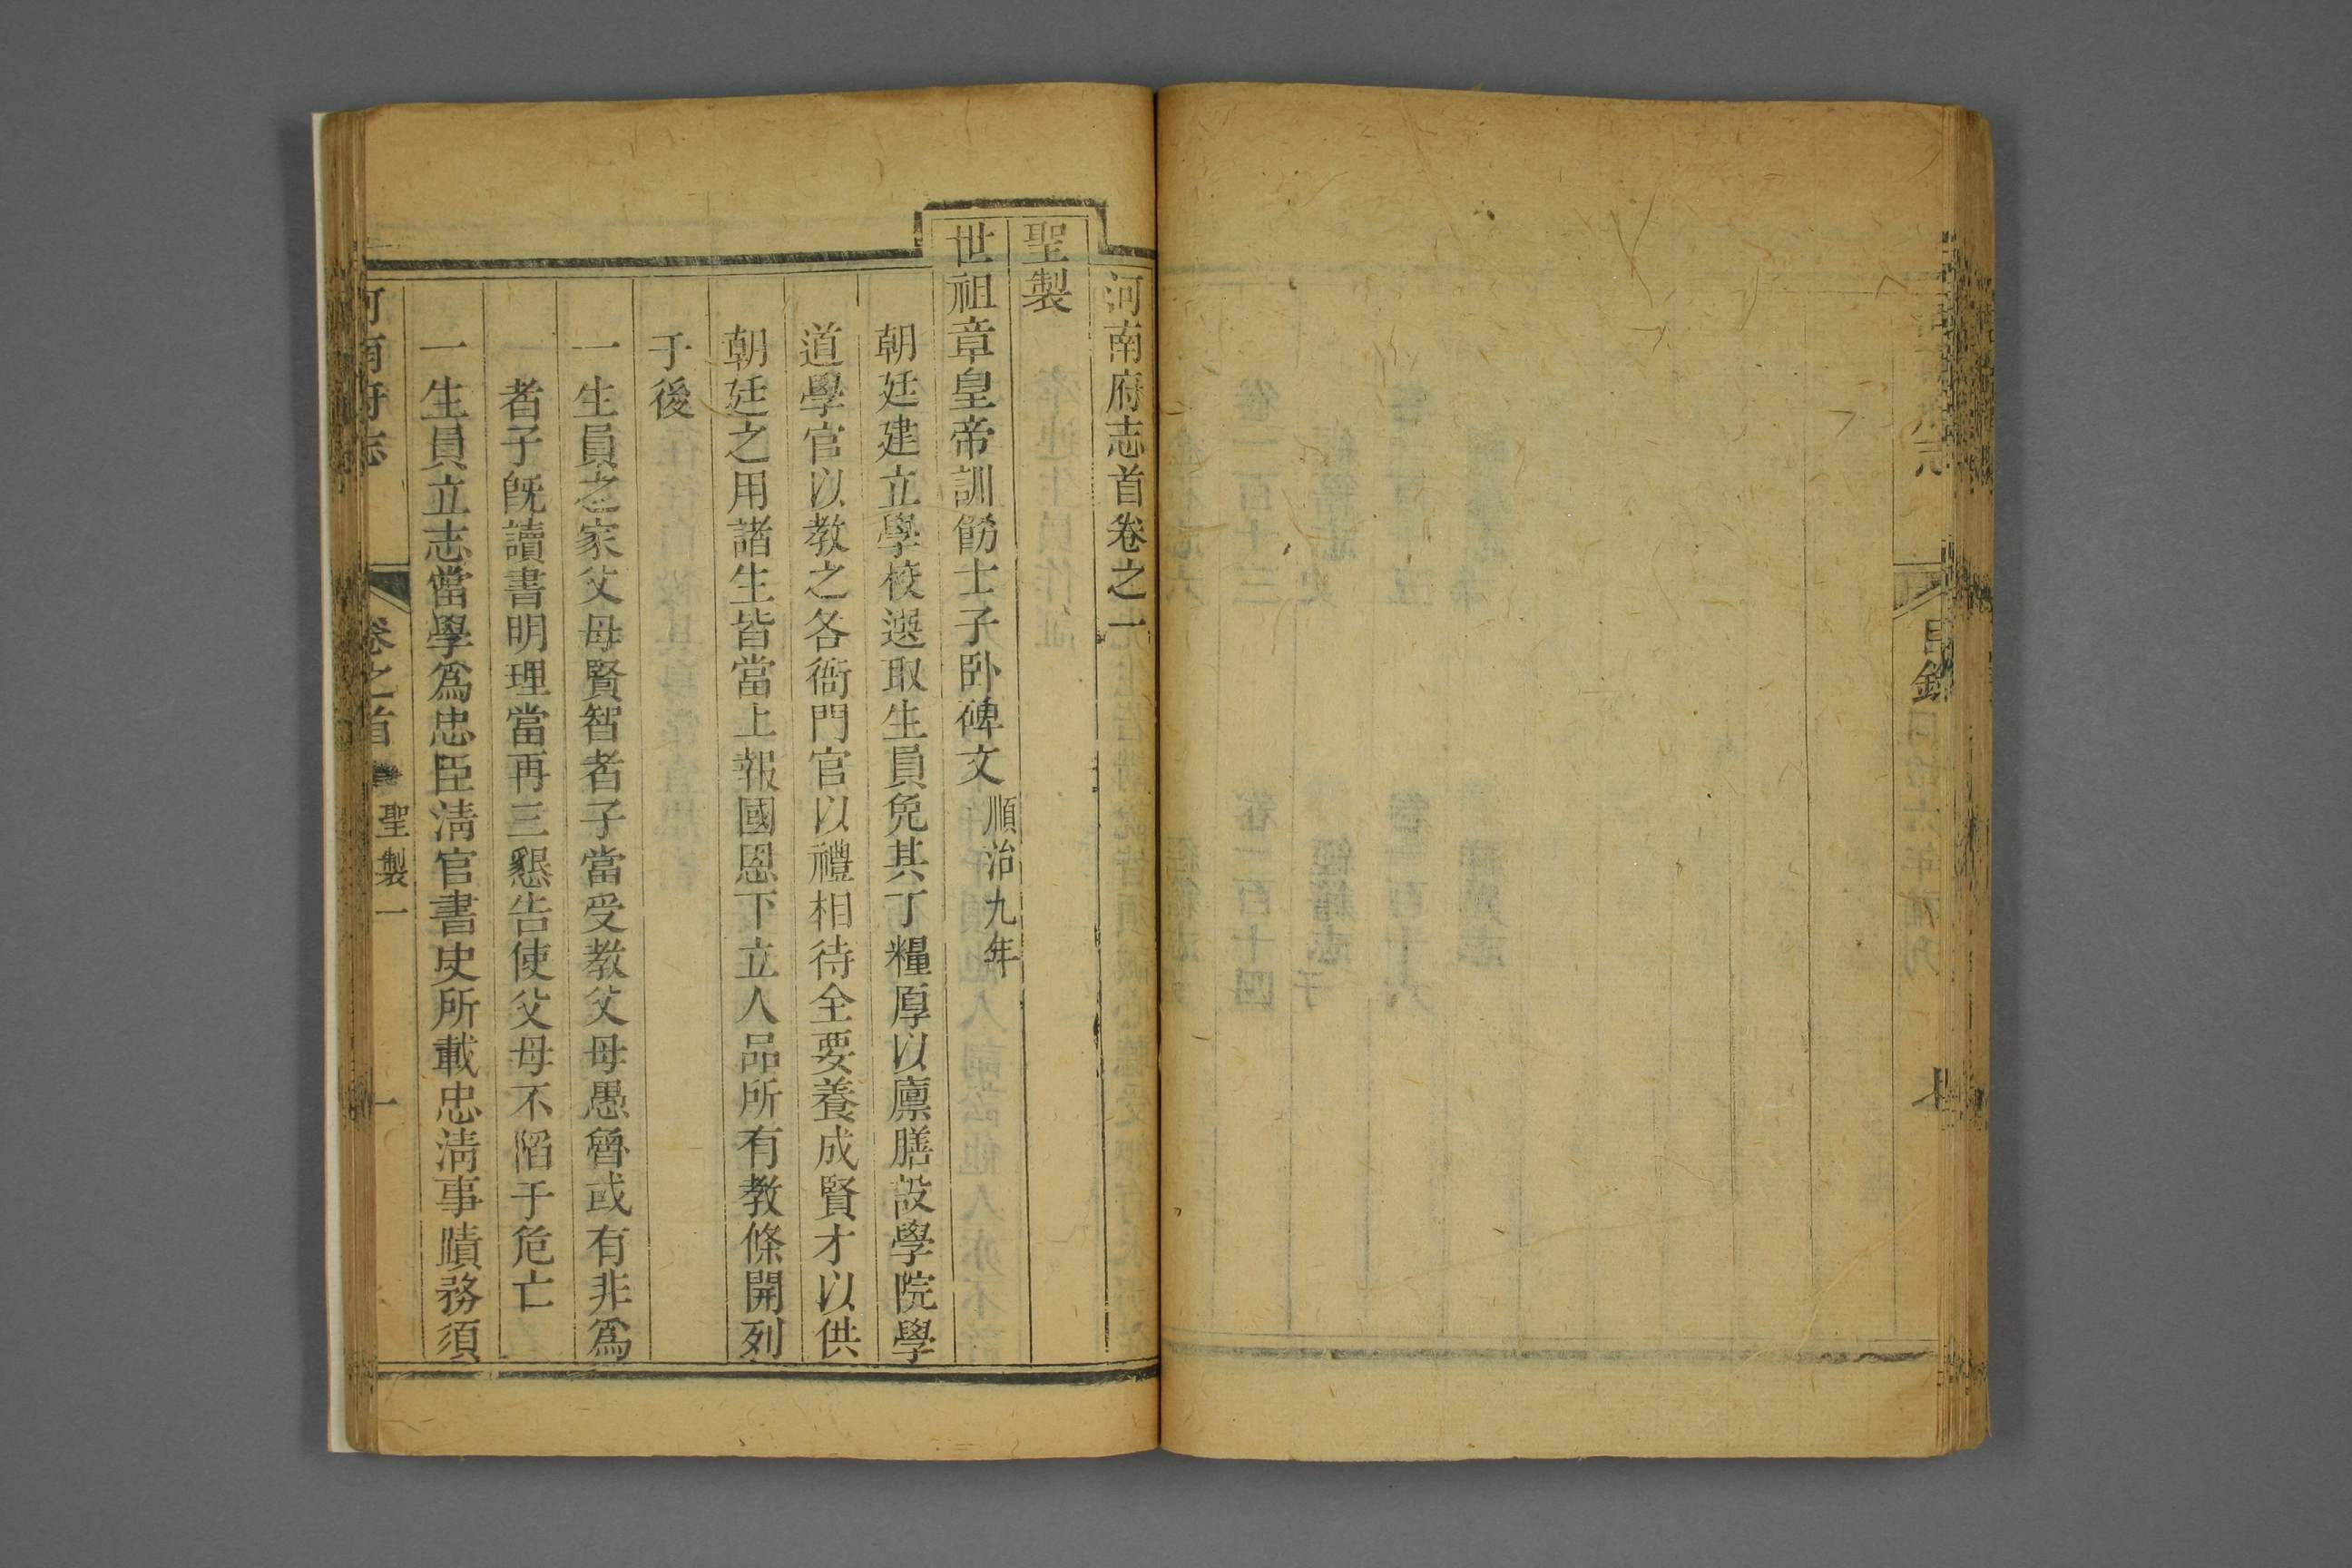 目錄
河南府志首卷之一
聖製
世祖章皇帝訓飭士子卧碑文順治九年
朝廷建立學校選取生員免其丁糧厚以廩膳設學院學
道學官以教之各衙門官以禮相待全要養成賢才以供
朝廷之用諸生皆當上報國恩下立人品所有教條開列
于後
一生員之家父母賢智者子當受教父母愚魯或有非爲
者子旣讀書明理當再三懇告使父母不陷于危亡
一生員立志當學爲忠臣淸官書史所載忠淸事蹟務須
河南府志 卷之首 聖製一 一